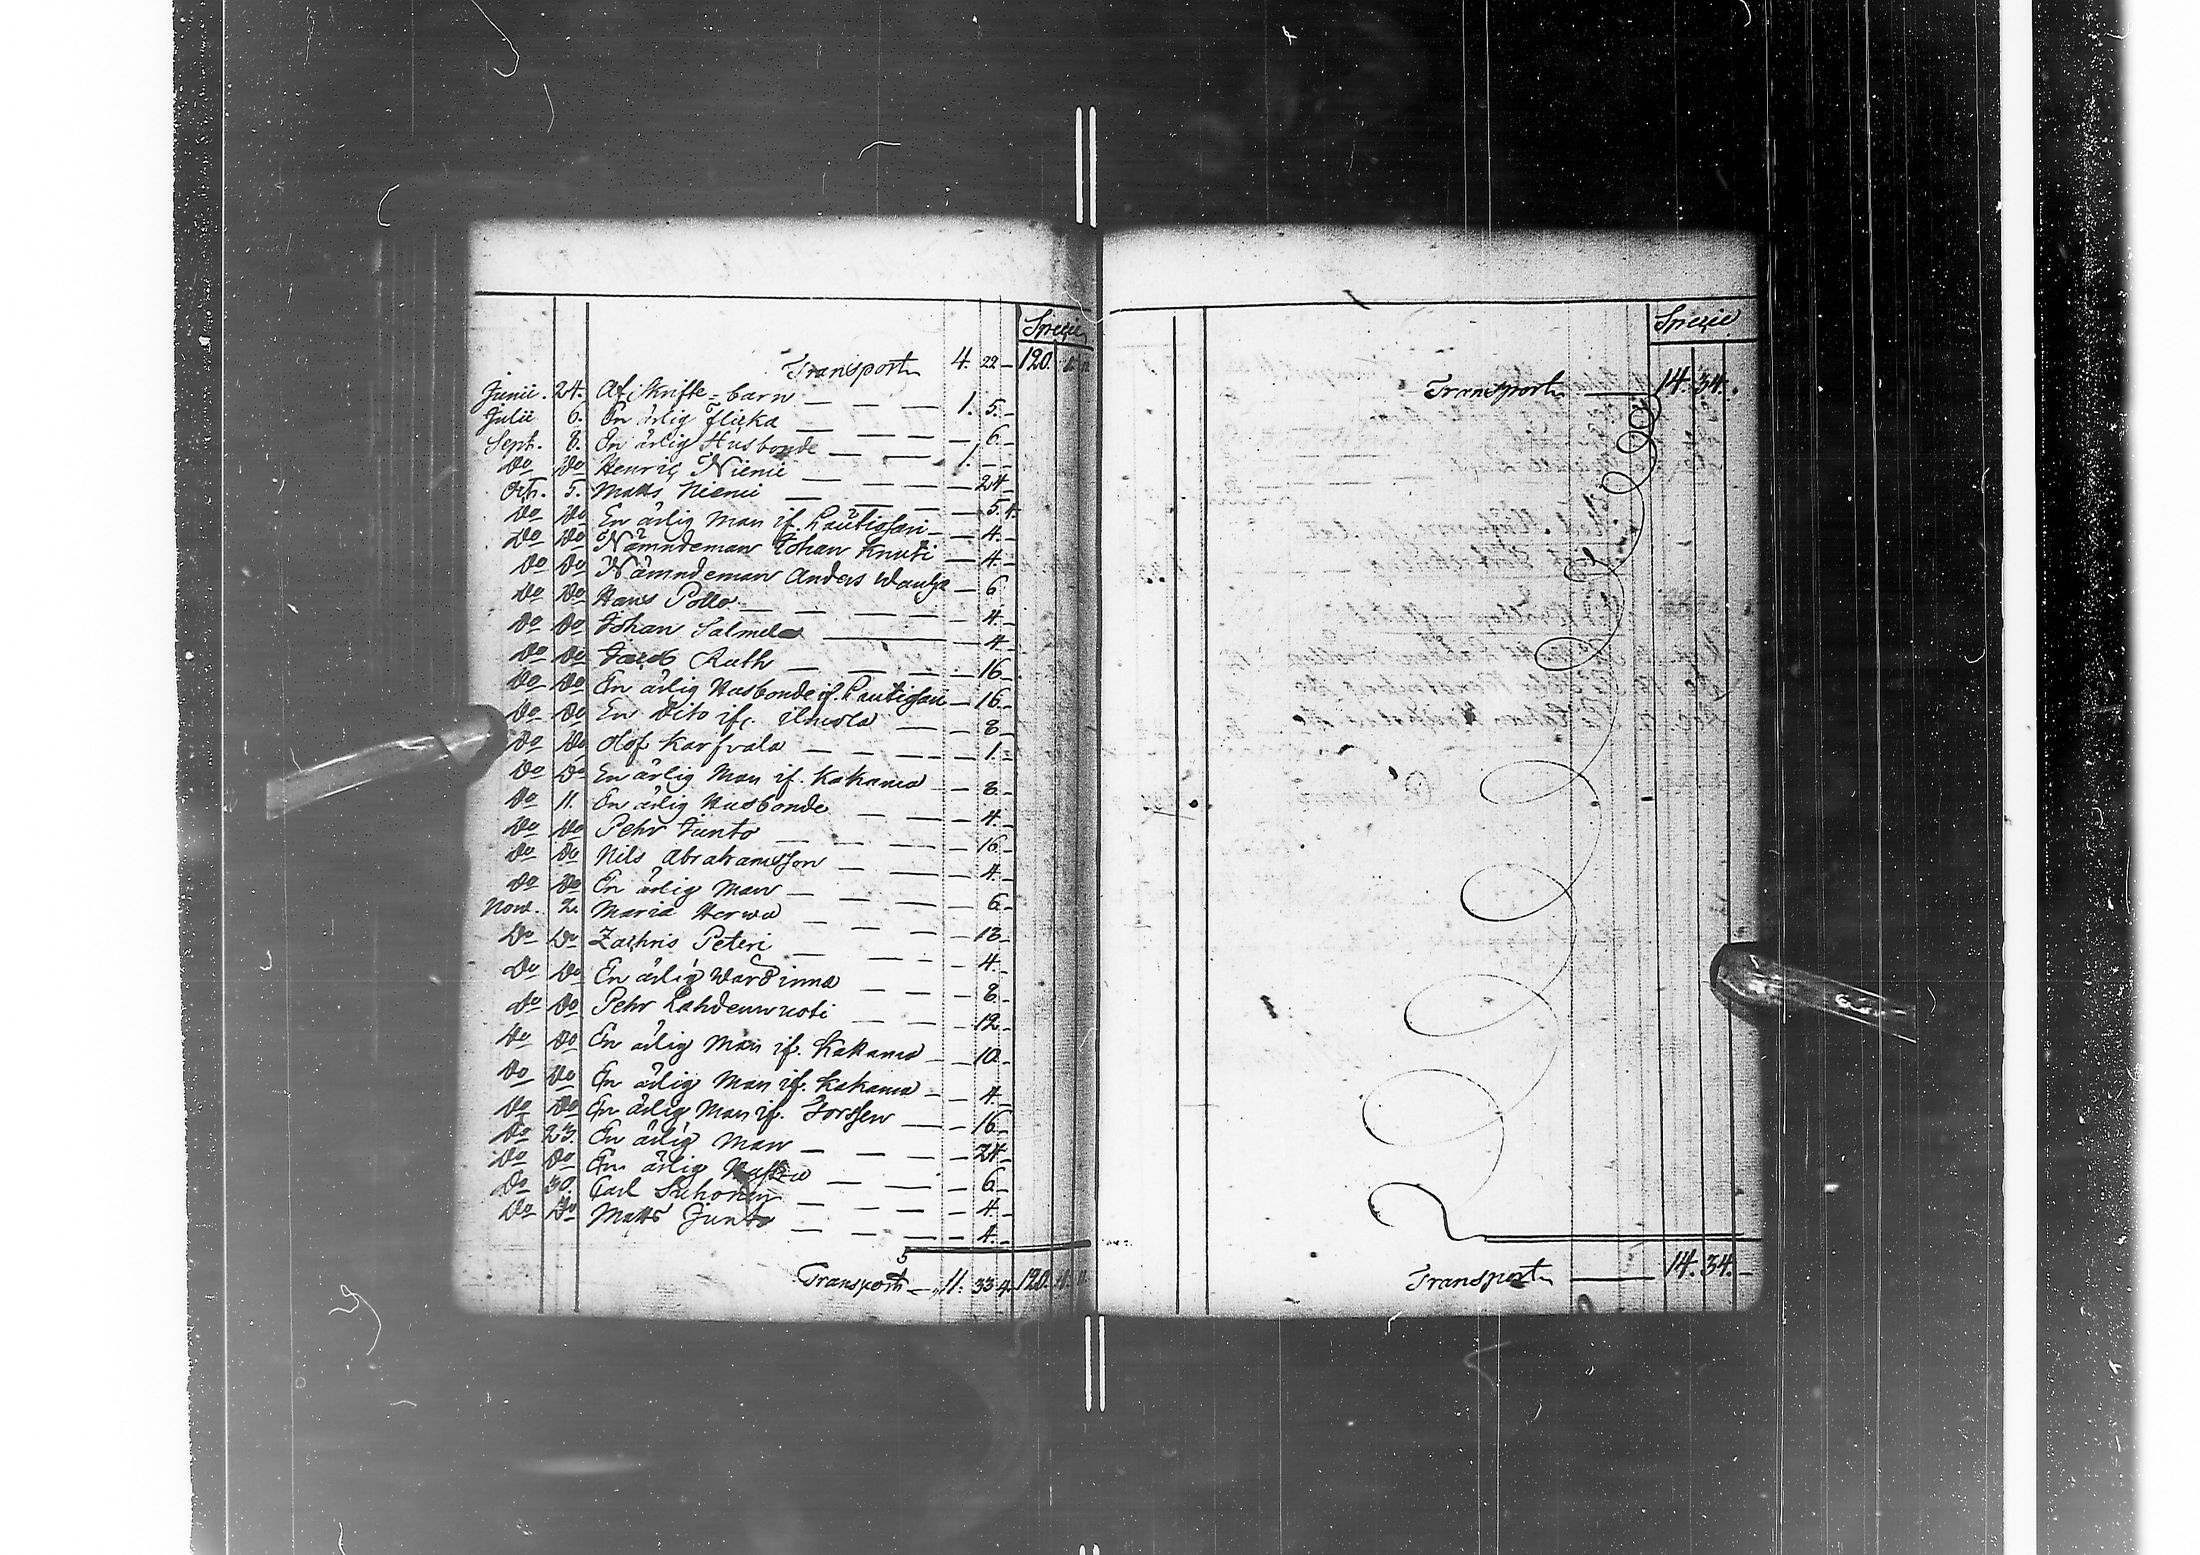 Specie
Transport 4. 22 – 120.
Junii. 24. Af Skrifte-barn — — — 1. 5. –
Julii 6. En ärlig Flicka — — — — 6. –
Sept. 8. En ärlig Husbonde — — 1. – –
Do Do Henric Niemi — — — — 24 –
Oct. 5. Matts Niemi — — — — 5. 4.
Do Do En ärlig Man if. Lautiosari – — 4. –
Do Do Nämndeman Johan Knuti — 4 –
Do Do Nämndeman Anders — 6
Do Do Hans Pello — — — — 4. –
Do Do Johan Salmela — — 4 –
Do Do Jacob Ruth — — — — 16 –
Do Do En ärlig Husbonde if. Lautiosari — 16 –
Do Do En Dito if. — — 8 –
Do Do Olof Karfvala — — — — 1. –
Do Do En ärlig Man if. Kakama — — 8 –
Do 11. En ärlig Husbonde — — — 4. –
Do Do Pehr Junto — — — — 16 –
Do Do Nils Abrahamsson — — — 4. –
Do Do En ärlig Man — — — — 6 –
Nov. 2. Maria Herwa — — — — 18 –
Do Do Zachris Peteri — — — — 4. –
Do Do En ärlig Wärdinna — — — 8 –
Do Do Pehr — — — 12 –
Do Do En ärlig Man if. Kakama — — 10 –
Do Do En ärlig Man if. Kakama – — 4 –
Do Do En ärlig Man if. — — 16 –
Do 23. En ärlig Man — — — — 24 –
Do Do En ärlig — — — 6 –
Do 30. Carl — — — 4 –
Do Do Matts Junto — — — 4. –
5
Transport — 11. 33 4. 120.
Specie
Transport — 14. 34.
Transport — 14. 34. –